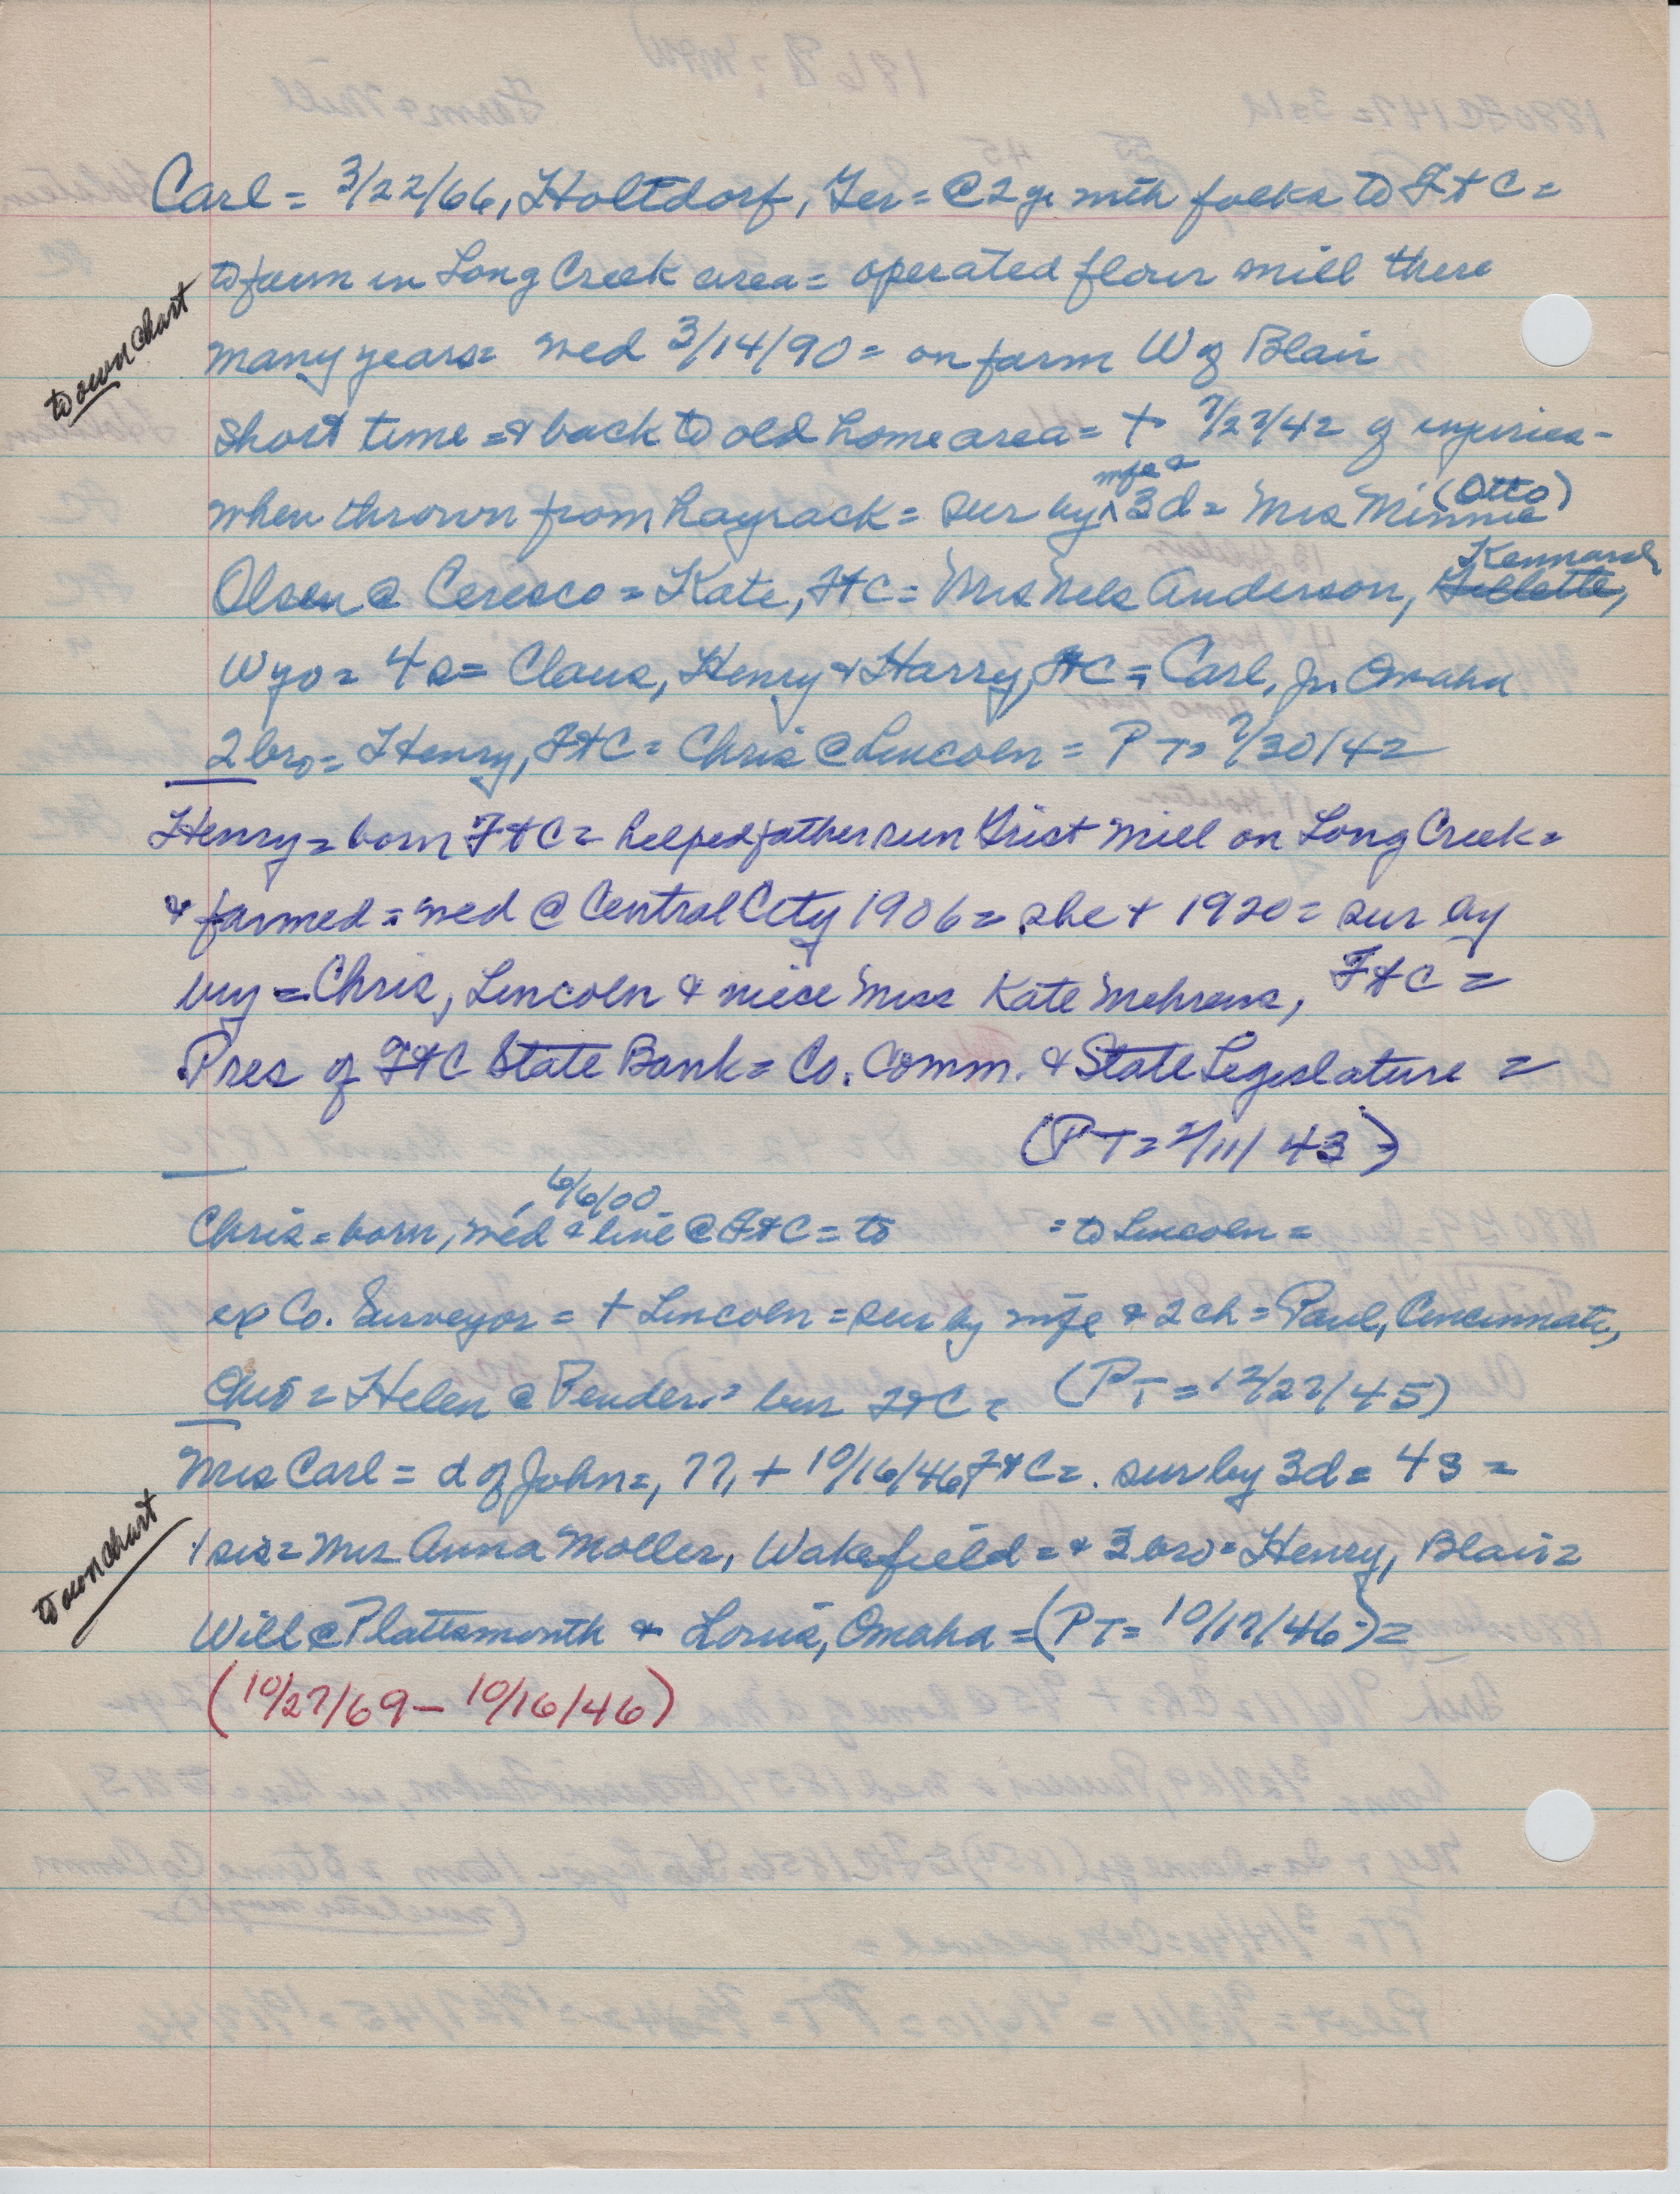 Carl = 3/22/66, Holtdorf, Ger = @ 2 yr with folks to Ft C =
to farm in Long Creek area = operated flour mill there
to own chart
many years = wed 3/14/90 = on farm W of Blair
short time = & back to old home area = + 7/27/42 of injuries -
when thrown from hayrack = sur by ^ wife & 3d = Mrs Minnie (Otto)
Olsen @ Ceresco = Kate, Ft C = Mrs Nels Anderson, Gillette, Kennard
Wyo = 4s = Claus, Henry & Harry, Ft C = Carl, Jr. Omaha
2 bro = Henry, Ft C = Chris @ Lincoln = PT = 7/30/42
Henry = born Ft C = helped father run Grist Mill on Long Creek =
& farmed = wed @ Central City 1906 = she + 1920 = sur by
bry = Chris, Lincoln & niece Miss Kate Mehrens, Ft C =
Pres of Ft C State Bank = Co. Comm. & State Legislature =
(PT = 2/11/43)
6/6/00
Chris = born, wed & live @ Ft C = to = to Lincoln =
ex Co. Surveyor = + Lincoln = sur by wife & 2 ch = Paul, Cincinnati,
Ohio = Helen @ Pender = bur Ft C = (PT = 12/27/45)
Mrs Carl = d of John =, 77, + 10/16/46 Ft C = sur by 3d = 4s =
to own chart
1 sis = Mrs Anna Moller, Wakefield = & 3 bro = Henry, Blair =
Will @ Plattsmouth & Louis, Omaha = (PT = 10/17/46) =
(10/27/69 - 10/16/46)